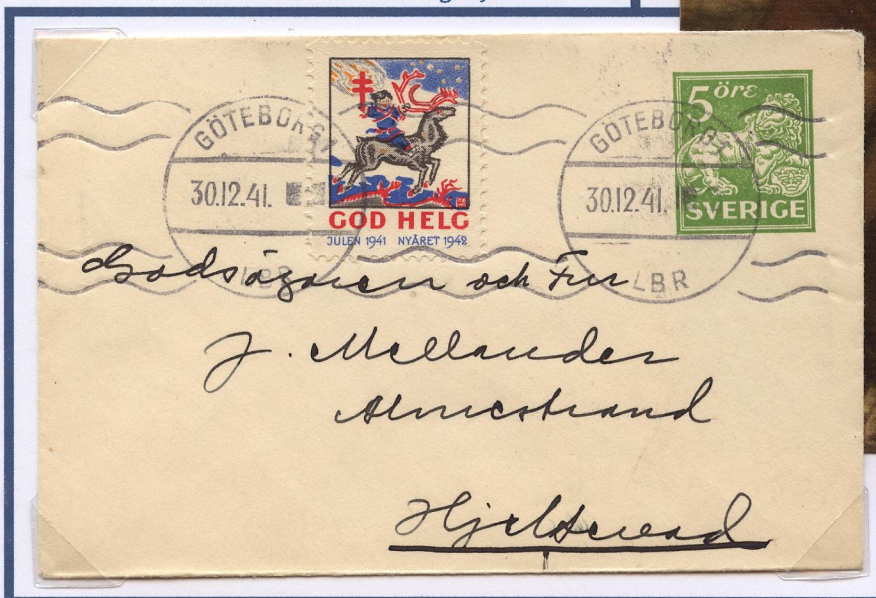 GÖTEBORG 1
30.12.41.
LBR
GOD HELG
JULEN 1941 NYÅRET 1942
GÖTEBORG 1
30.12.41.
LBR
5 öre
SVERIGE
Godsägaren och Fru
J. Mellander
Almestrand
Hjeltevad